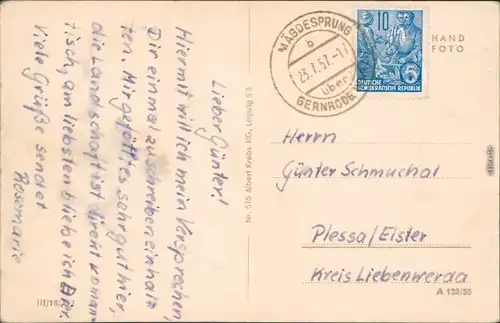 Lieber Günter!
Hiermit will ich mein Versprechen,
Dir einmal zu schreiben einhal=
ten. Mir gefällt es sehr gut hier,
die Landschaft ist direkt roman=
tisch, am liebsten bliebe ich hier.
Viele Grüße sendet
Rosemarie
III/18/
Nr. 516 Albert Krebs KG, Leipzig S 3
MÄGDESPRUNG
b
23.7.57.-17
über
GERNRODE
10
DEUTSCHE
DEMOKRATISCHE REPUBLIK
HAND
FOTO
Herrn
Günter Schmuchal
Plessa/Elster
Kreis Liebenwerda
A 132/55